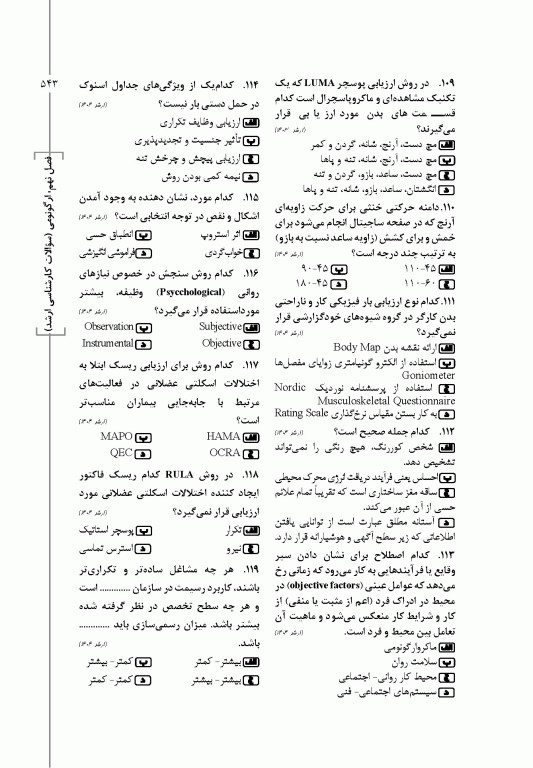 ۵۴۳
فصل نهم: ارگونومی (سؤالات کارشناسی ارشد)
۱۰۹. در روش ارزیابی پوسچر LUMA که یک
تکنیک مشاهده‌ای و ماکروپاسچرال است کدام
قســمت های بدن مورد ارز یا بی قرار
می‌گیرند؟
الف مچ دست، آرنج، شانه، گردن و کمر
ب مچ دست، آرنج، شانه، تنه و پاها
ج مچ دست، ساعد، بازو، گردن و تنه
د انگشتان، ساعد، بازو، شانه، تنه و پاها
۱۱۰. دامنه حرکتی خنثی برای حرکت زاویه‌ای
آرنج که در صفحه ساجیتال انجام می‌شود برای
خمش و برای کشش (زاویه ساعد نسبت به بازو)
به ترتیب چند درجه است؟
الف ۱۱۰-۴۵ ب ۹۰-۴۵
ج ۱۱۰-۶۰ د ۱۸۰-۴۵
۱۱۱. کدام نوع ارزیابی بار فیزیکی کار و ناراحتی
بدن کارگر در گروه شیوه‌های خودگزارشی قرار
نمی‌گیرد؟
الف ارائه نقشه بدن Body Map
ب استفاده از الکترو گونیامتری زوایای مفصل‌ها
Goniometer
ج استفاده از پرسشنامه نوردیک Nordic
Musculoskeletal Questionnaire
د به کار بستن مقیاس نرخ‌گذاری Rating Scale
۱۱۲. کدام جمله صحیح است؟
الف شخص کوررنگ، هیچ رنگی را نمی‌تواند
تشخیص دهد.
ب احساس یعنی فرآیند دریافت انرژی محرک محیطی
ج ساقه مغز ساختاری است که تقریباً تمام علائم
حسی از آن عبور می‌کند.
د آستانه مطلق عبارت است از توانایی یافتن
اطلاعاتی که زیر سطح آگهی و هوشیارانه قرار دارد.
۱۱۳. کدام اصطلاح برای نشان دادن سیر
وقایع یا فرآیندهایی به کار می‌رود که زمانی رخ
می‌دهد که عوامل عینی (objective factors) در
محیط در ادراک فرد (اعم از مثبت یا منفی) از
کار و شرایط کار منعکس می‌شود و ماهیت آن
تعامل بین محیط و فرد است.
الف ماکروارگونومی
ب سلامت روان
ج محیط کار روانی- اجتماعی
د سیستم‌های اجتماعی- فنی
۱۱۴. کدام‌یک از ویژگی‌های جداول اسنوک
در حمل دستی بار نیست؟
الف ارزیابی وظایف تکراری
ب تأثیر جنسیت و تجدیدپذیری
ج ارزیابی پیچش و چرخش تنه
د نیمه کمی بودن روش
۱۱۵. کدام مورد، نشان دهنده به وجود آمدن
اشکال و نقص در توجه انتخابی است؟
الف اثر استروپ ب انطباق حسی
ج خواب‌گردی د فراموشی انگیزشی
۱۱۶. کدام روش سنجش در خصوص نیازهای
روانی (Psycchological) وظیفه، بیشتر
مورداستفاده قرار می‌گیرد؟
الف Subjective ب Observation
ج Objective د Instrumental
۱۱۷. کدام روش برای ارزیابی ریسک ابتلا به
اختلالات اسکلتی عضلانی در فعالیت‌های
مرتبط با جابه‌جایی بیماران مناسب‌تر
است؟
الف HAMA ب MAPO
ج OCRA د QEC
۱۱۸. در روش RULA کدام ریسک فاکتور
ایجاد کننده اختلالات اسکلتی عضلانی مورد
ارزیابی قرار نمی‌گیرد؟
الف تکرار ب پوسچر استاتیک
ج نیرو د استرس تماسی
۱۱۹. هر چه مشاغل ساده‌تر و تکراری‌تر
باشند، کاربرد رسمیت در سازمان ............ است
و هر چه سطح تخصص در نظر گرفته شده
بیشتر باشد. میزان رسمی‌سازی باید ............
باشد.
الف بیشتر- کمتر ب کمتر- بیشتر
ج بیشتر- بیشتر د کمتر- کمتر